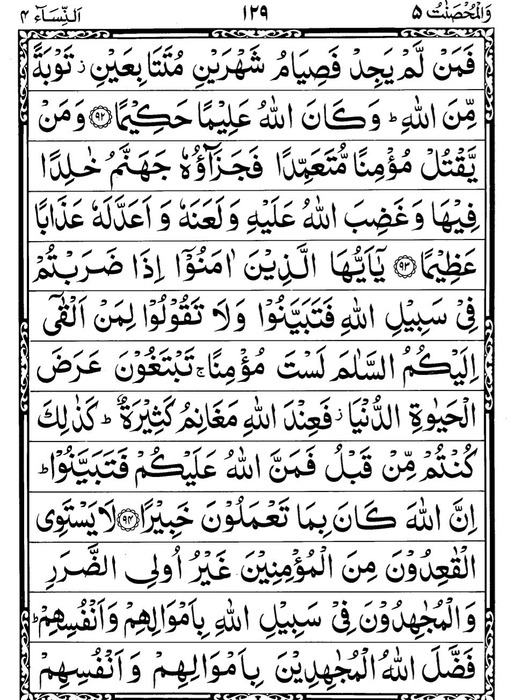 وَالْمُحْصَنٰتُ ٥ ١٢٩ اَلنِّسَآء ٤
فَمَنْ لَّمْ يَجِدْ فَصِيَامُ شَهْرَيْنِ مُتَتَابِعَيْنِ ز تَوْبَةً
مِّنَ اللّٰهِ ؕ وَكَانَ اللّٰهُ عَلِيْمًا حَكِيْمًا ﴿٩٢﴾ وَمَنْ
يَّقْتُلْ مُؤْمِنًا مُّتَعَمِّدًا فَجَزَآؤُهٗ جَهَنَّمُ خٰلِدًا
فِيْهَا وَغَضِبَ اللّٰهُ عَلَيْهِ وَلَعَنَهٗ وَاَعَدَّلَهٗ عَذَابًا
عَظِيْمًا ﴿٩٣﴾ يٰۤاَيُّهَا الَّذِيْنَ اٰمَنُوْۤا اِذَا ضَرَبْتُمْ
فِيْ سَبِيْلِ اللّٰهِ فَتَبَيَّنُوْا وَلَا تَقُوْلُوْا لِمَنْ اَلْقٰۤى
اِلَيْكُمُ السَّلٰمَ لَسْتَ مُؤْمِنًا ۚ تَبْتَغُوْنَ عَرَضَ
الْحَيٰوةِ الدُّنْيَا ز فَعِنْدَ اللّٰهِ مَغَانِمُ كَثِيْرَةٌ ؕ كَذٰلِكَ
كُنْتُمْ مِّنْ قَبْلُ فَمَنَّ اللّٰهُ عَلَيْكُمْ فَتَبَيَّنُوْا ؕ
اِنَّ اللّٰهَ كَانَ بِمَا تَعْمَلُوْنَ خَبِيْرًا ﴿٩٤﴾ لَا يَسْتَوِى
الْقٰعِدُوْنَ مِنَ الْمُؤْمِنِيْنَ غَيْرُ اُولِى الضَّرَرِ
وَالْمُجٰهِدُوْنَ فِيْ سَبِيْلِ اللّٰهِ بِاَمْوَالِهِمْ وَاَنْفُسِهِمْ ؕ
فَضَّلَ اللّٰهُ الْمُجٰهِدِيْنَ بِاَمْوَالِهِمْ وَاَنْفُسِهِمْ